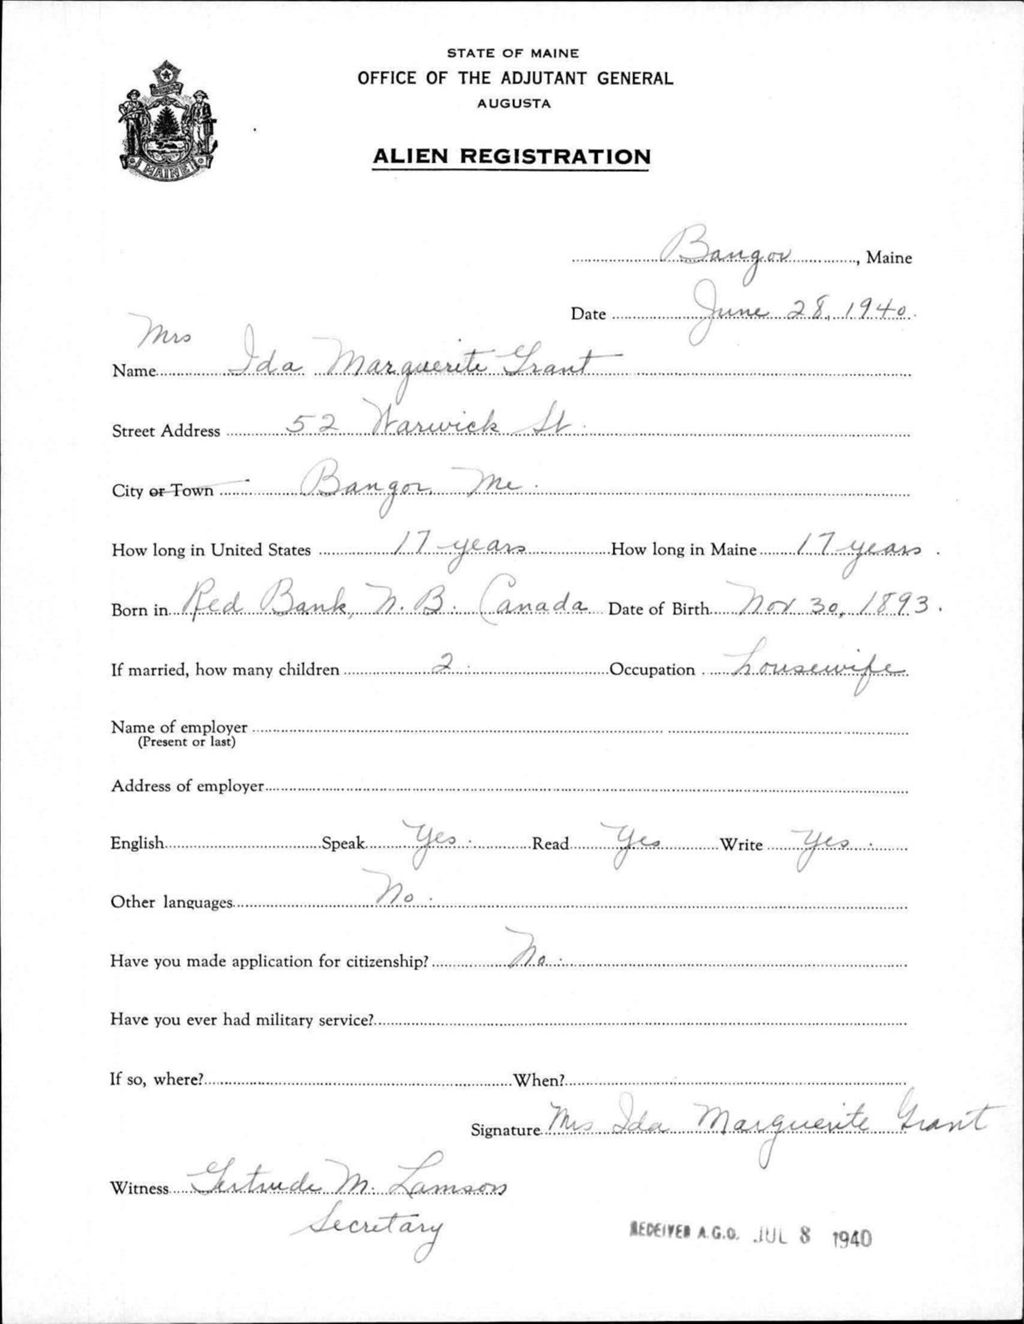 STATE OF MAINE
OFFICE OF THE ADJUTANT GENERAL
AUGUSTA
ALIEN REGISTRATION
MAINE
Bangor, Maine
Date June 28, 1940.
Mrs
Name Ida Marguerite Grant
Street Address 52 Warwick St.
City or Town Bangor, Me.
How long in United States 17 years How long in Maine 17 years.
Born in Red Bank, N. B. Canada Date of Birth Nov 30, 1893.
If married, how many children 2. Occupation housewife
Name of employer
(Present or last)
Address of employer
English Speak Yes. Read Yes Write Yes.
Other languages No.
Have you made application for citizenship? No.
Have you ever had military service?
If so, where? When?
Signature Mrs Ida Marguerite Grant
Witness Gertrude M. Lamson
Secretary
RECEIVED A.G.O. JUL 8 1940